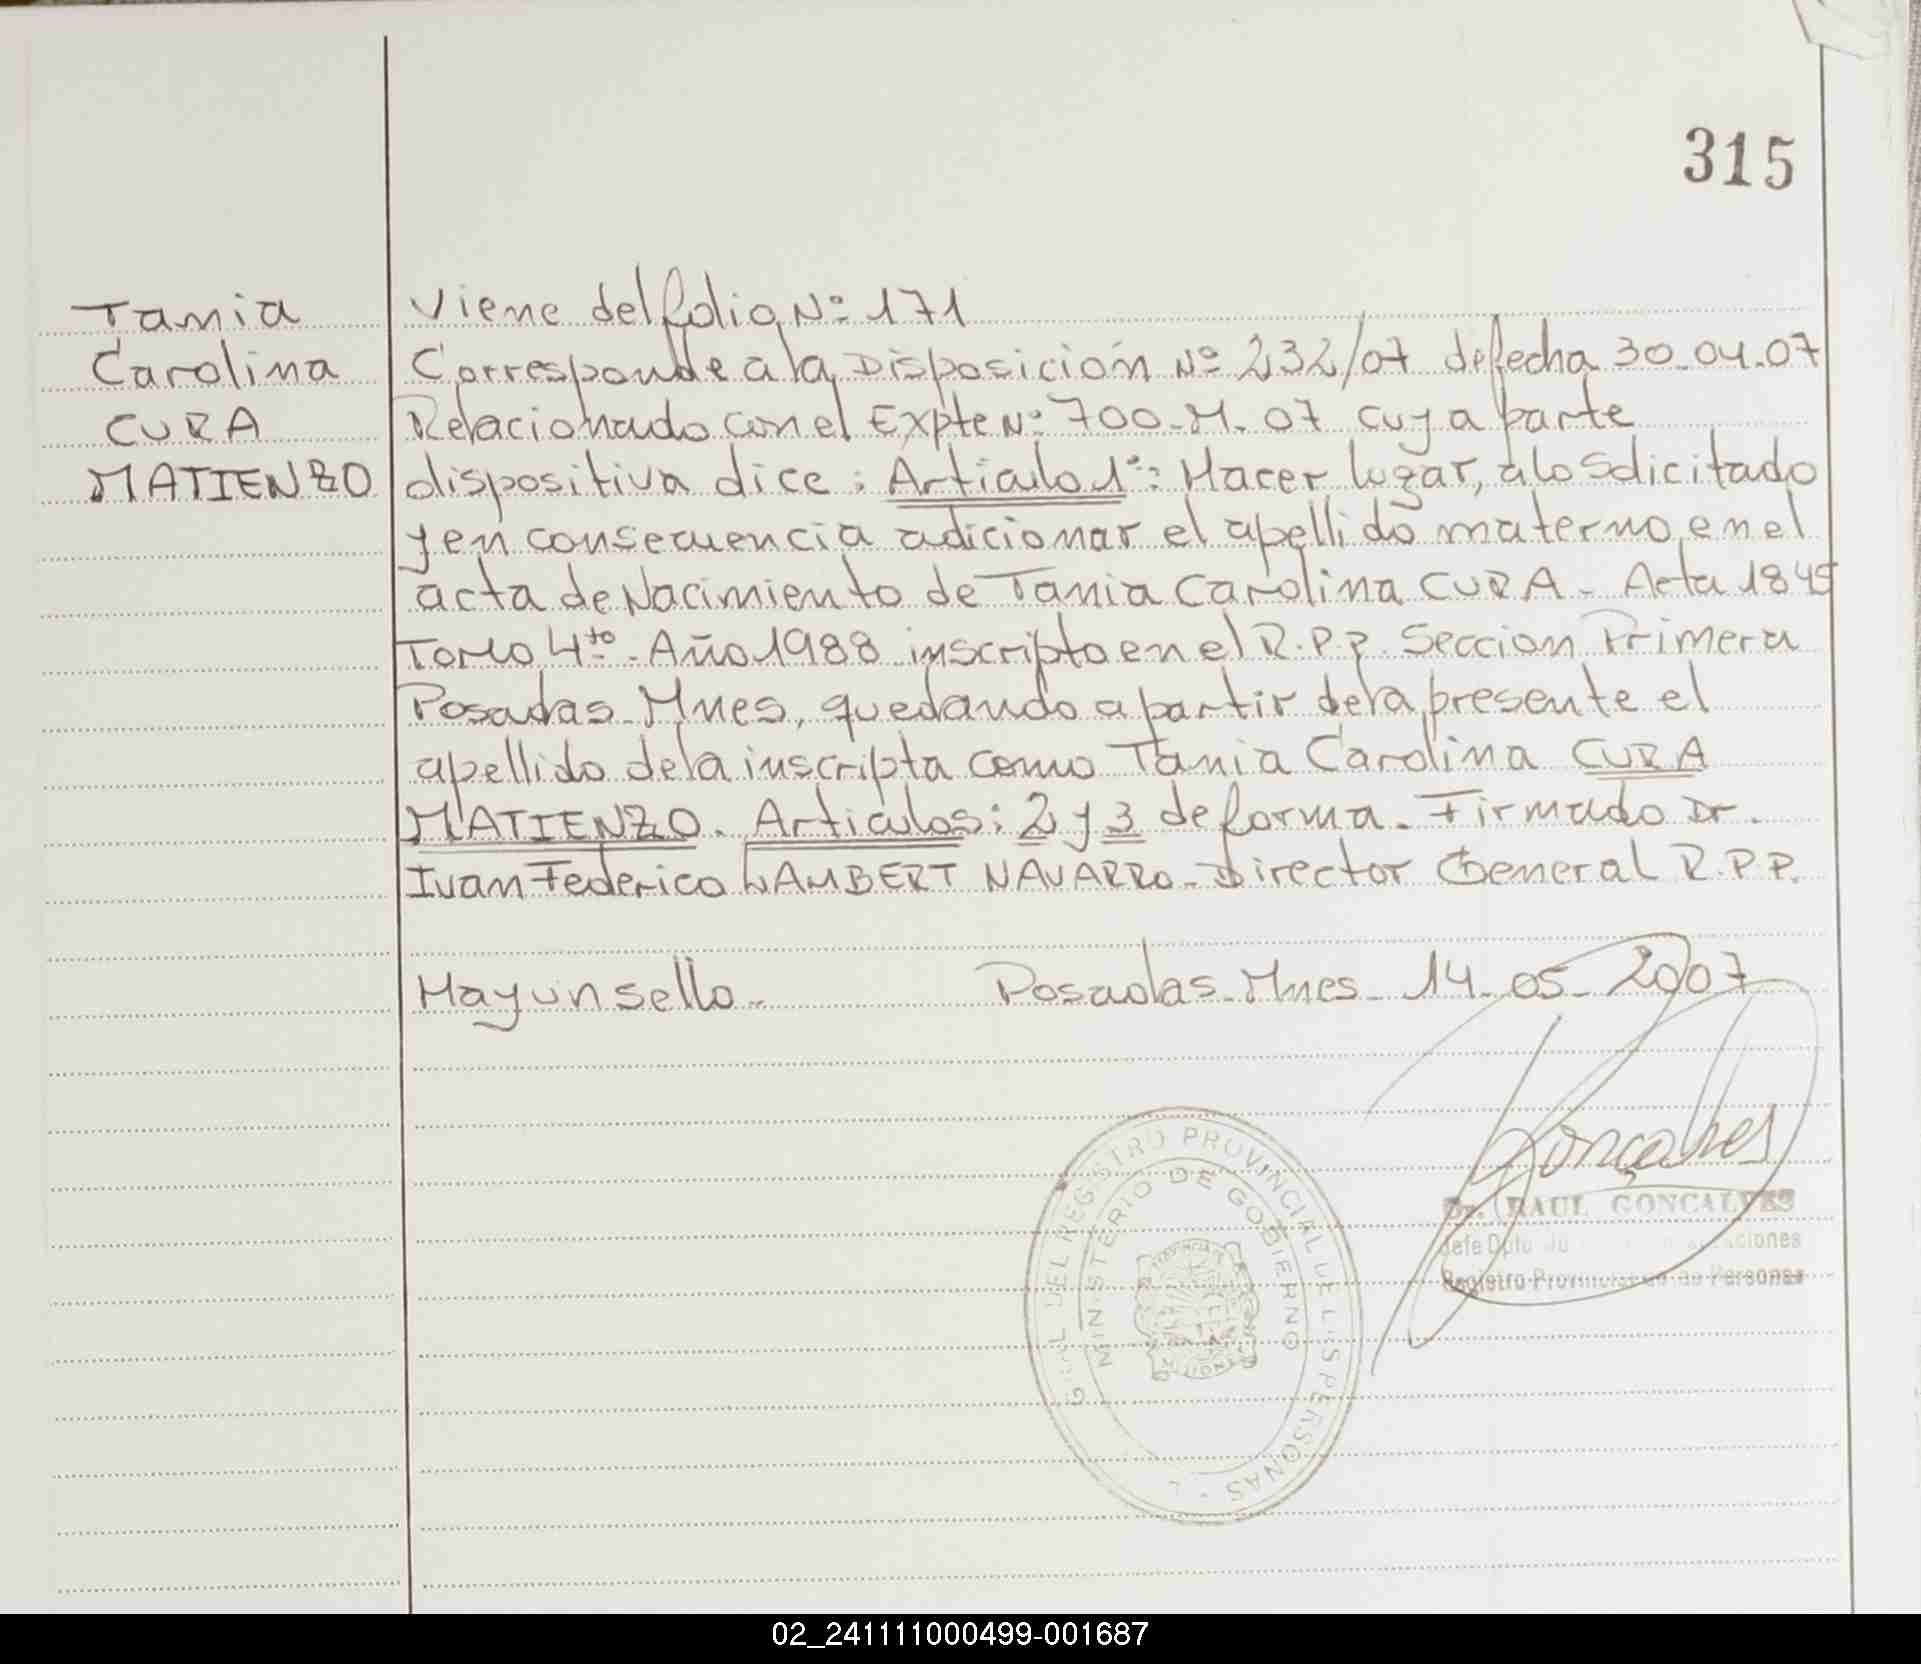 315
Tania
Carolina
CURA
MATIENZO
Viene del folio Nº 171
Corresponde a la Disposición Nº 232/07 de fecha 30-04-07
Relacionado con el Expte Nº 700-M-07 cuya parte
dispositiva dice: Artículo 1º: Hacer lugar, a lo solicitado
y en consecuencia adicionar el apellido materno, en el
acta de Nacimiento de Tania Carolina CURA - Acta 1845
Tomo 4to. Año 1988 inscripto en el R.P.P. Seccion Primera
Posadas - Mnes, quedando a partir de la presente el
apellido de la inscripta como Tania Carolina CURA
MATIENZO. Articulos: 2 y 3 de forma. Firmado Dr.
Ivan Federico LAMBERT NAVARRO - Director General R.P.P.
Hay un sello - Posadas - Mnes - 14-05-2007
Gonçalves
Dr. RAUL GONCALVES
Jefe Dpto
Registro Provincial de las Personas
GRAL DEL REGISTRO PROVINCIAL DE LAS PERSONAS
MINISTERIO DE GOBIERNO
PROVINCIA DE
MISIONES
02_241111000499-001687